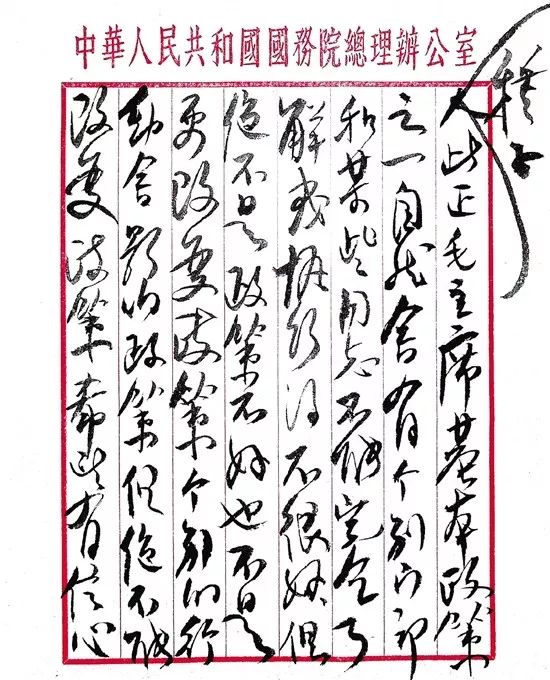 中華人民共和國國務院總理辦公室
人此正毛主席基本政策
之一自然會有个别干部
和某些同志不能完全了
解或执行得不很好但
绝不是政策不好也不是
要改变政策个别的行
动會影响政策但绝不能
改变政策希望有信心